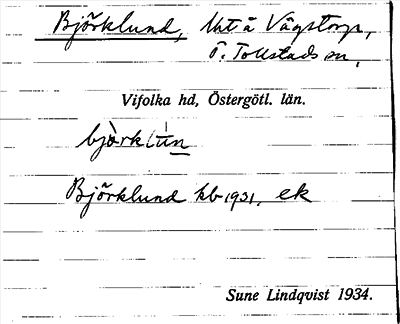 Björklund, Urt å Vägstorp,
V. Tollstad sn,
Vifolka hd, Östergötl. län.
bjö̀rkḷún
Björklund kb 1931, ek
Sune Lindqvist 1934.